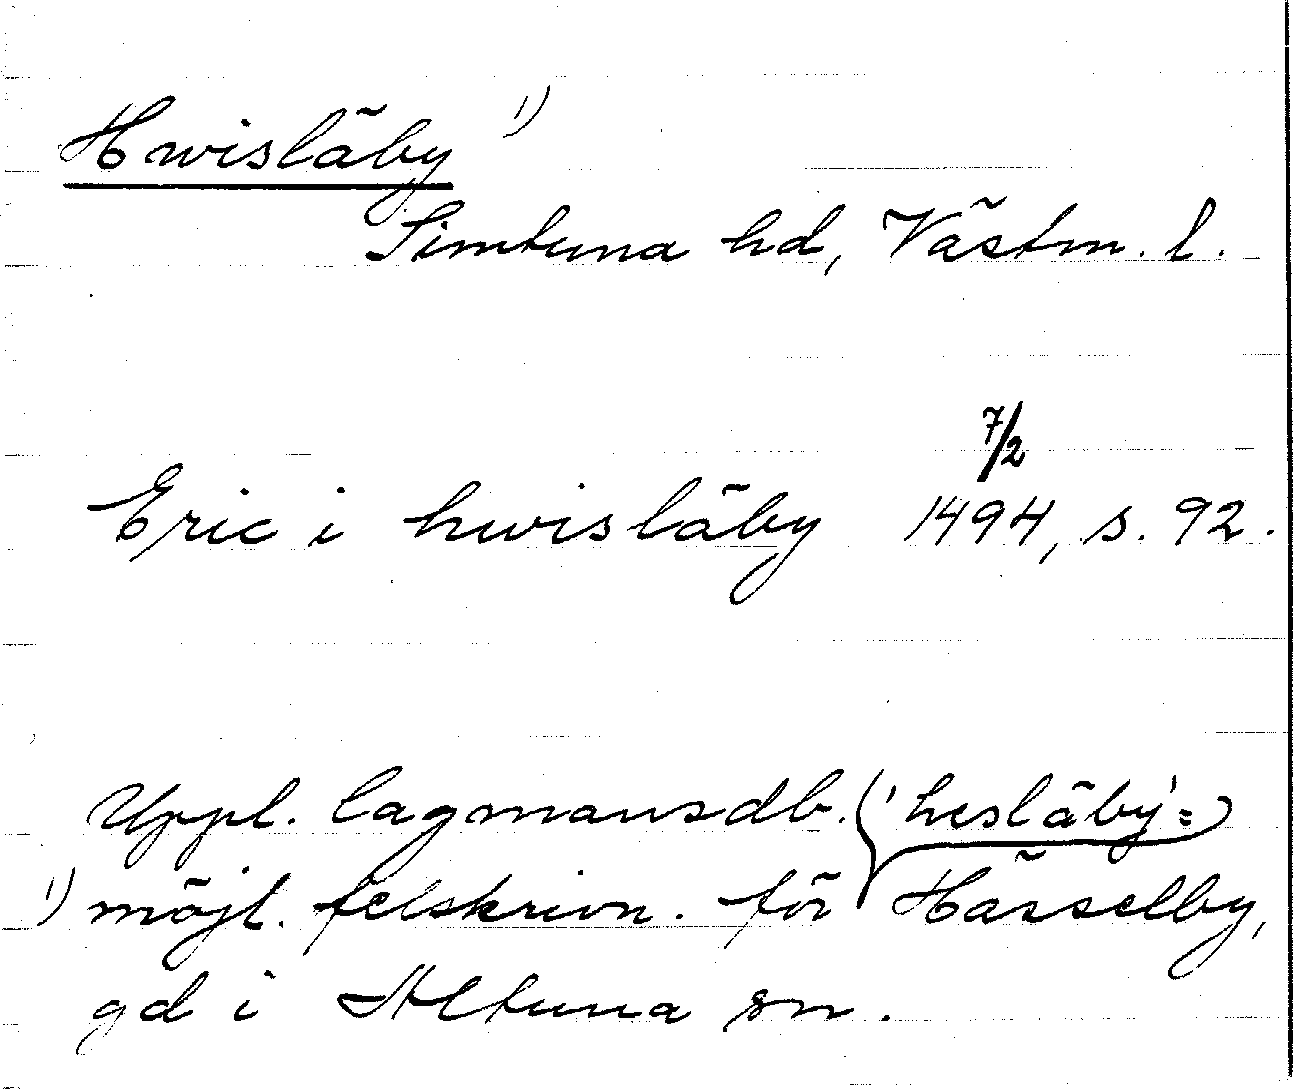 Hwisläby 1)
Simtuna hd, Västm. l.
7/2
Eric i hwisläby 1494, s. 92.
Uppl. lagmansdb. ('hesläby' =)
1) möjl. felskrivn. för Hässelby,
gd i Altuna sn.